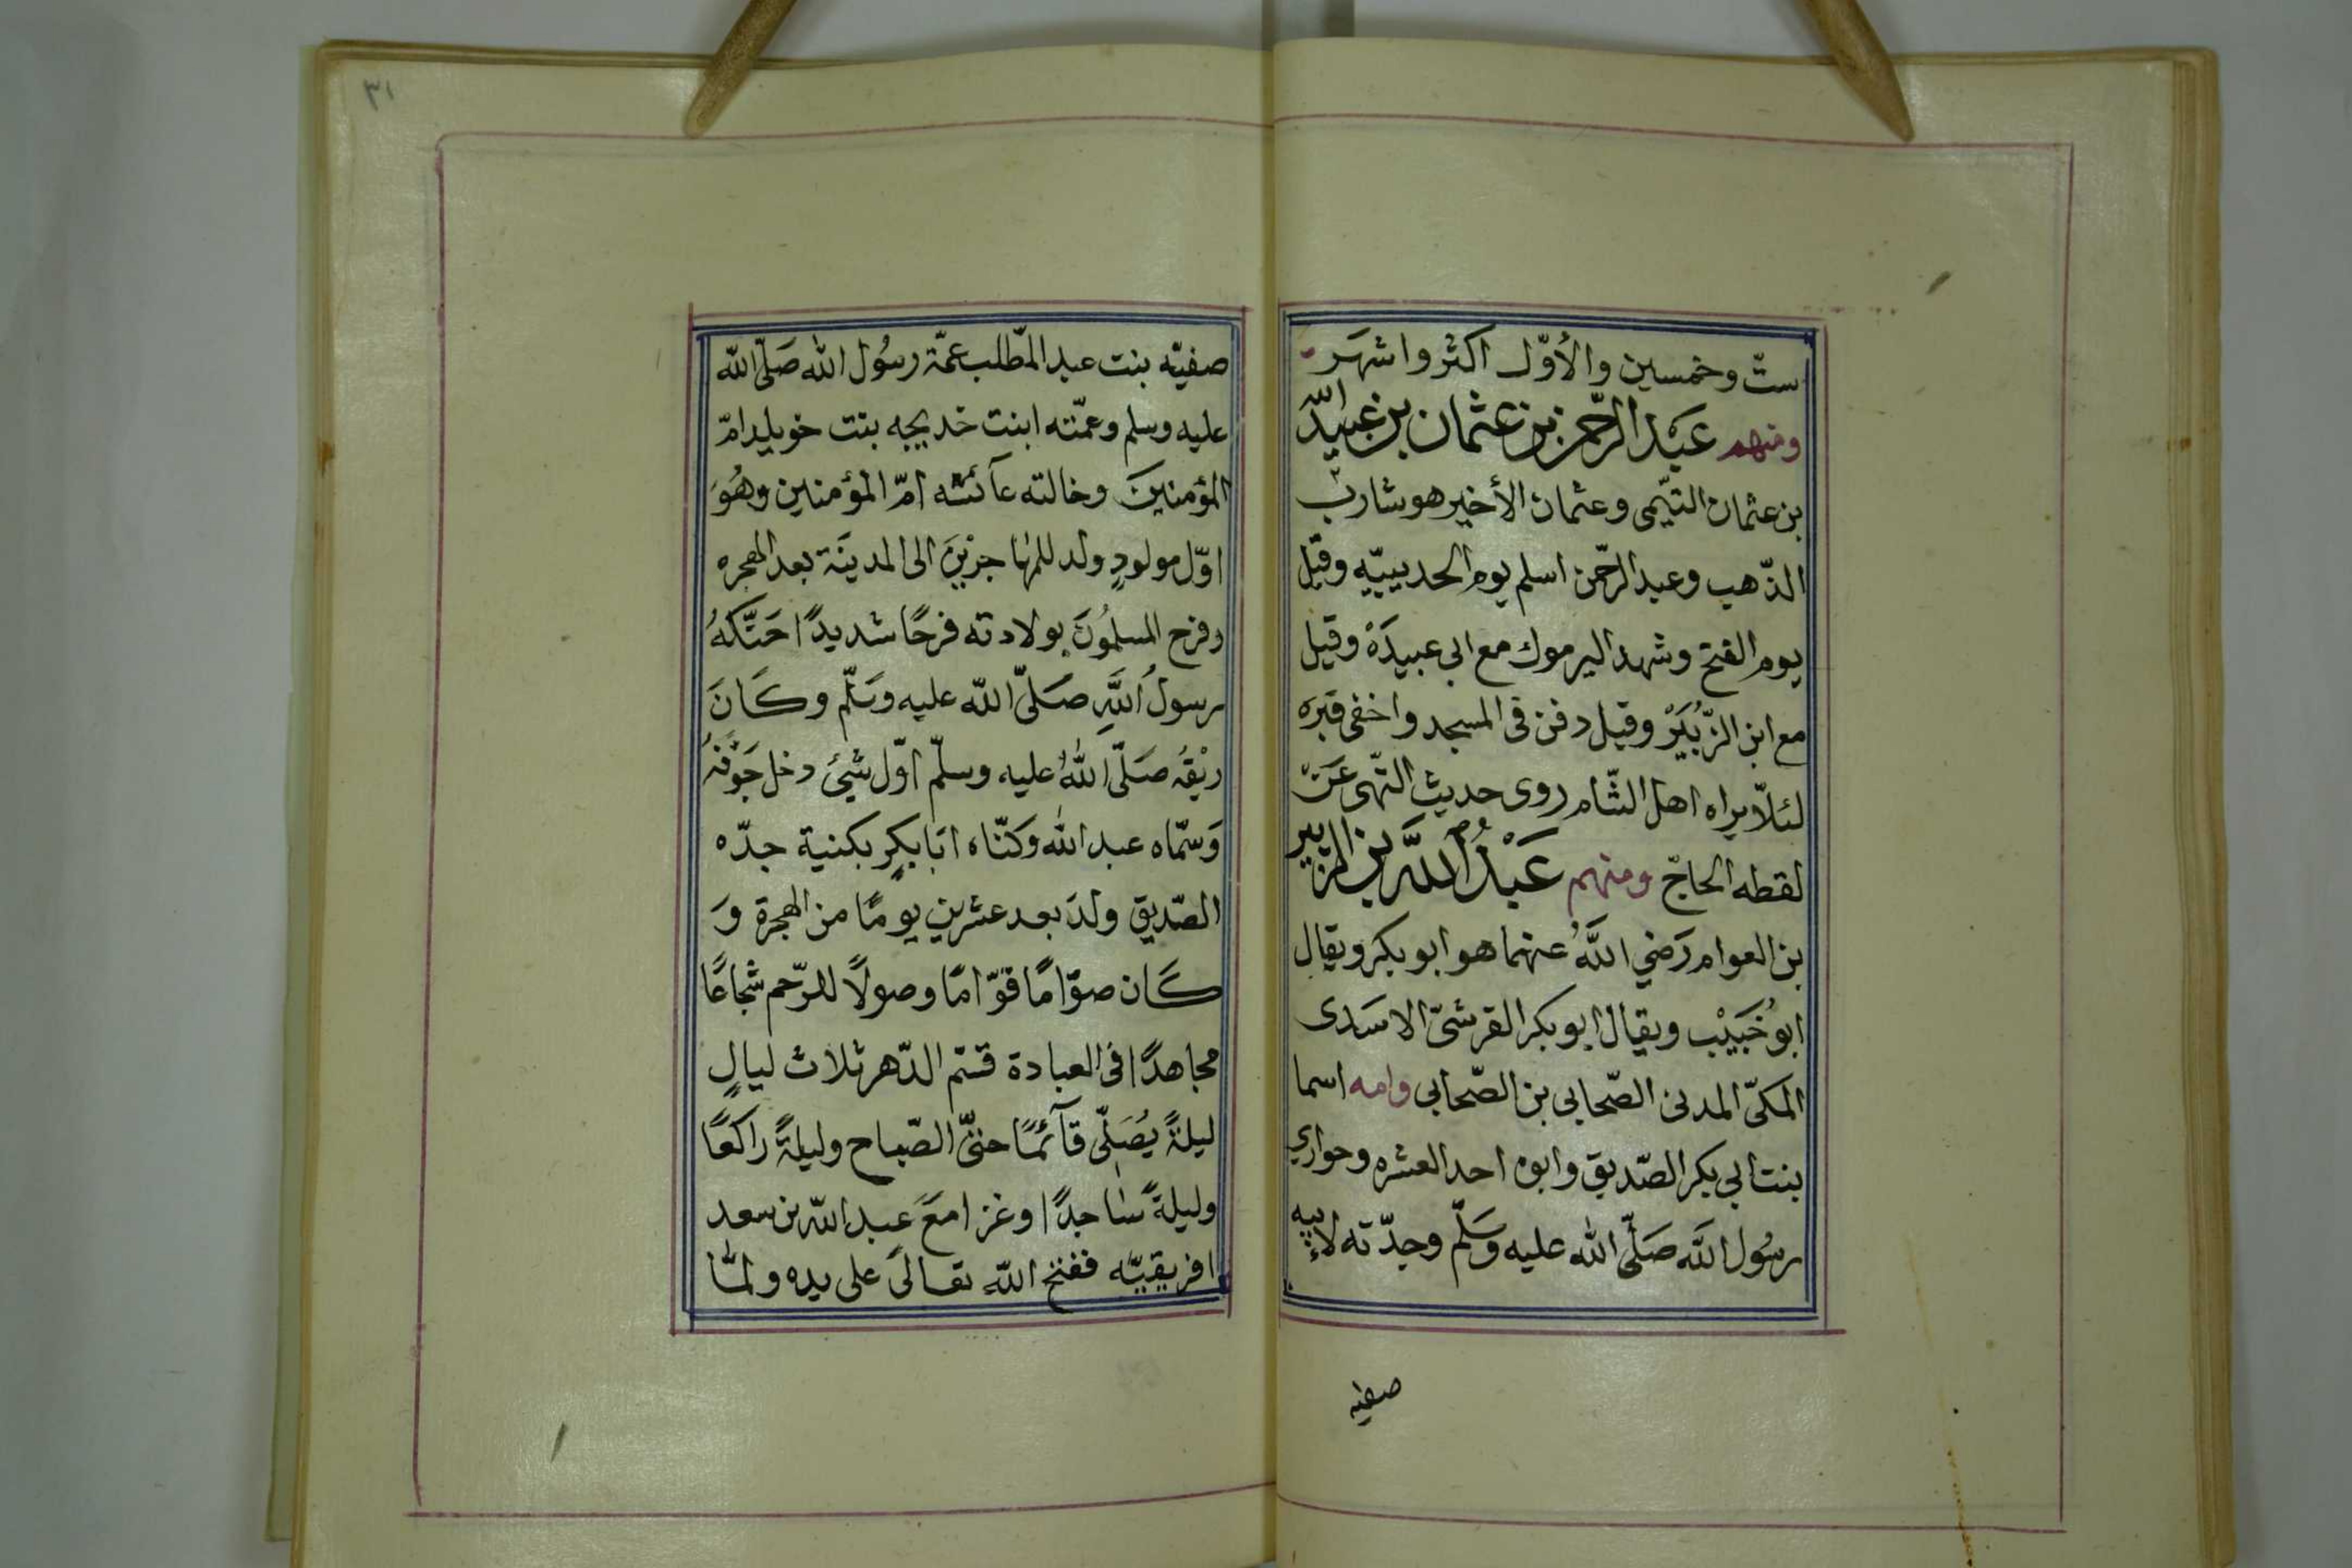 ستّ وخمسين والأوّل اكثر واشهَر
ومنهم عَبْد الرّحمن بن عثمان بن عبيد اللّه
بن عثمان التيّمى وعثمان الأخير هو شارب
الذّهب وعبد الرّحمن اسلم يوم الحديبيّه وقيل
يوم الفتح وشهد اليرموك مع ابى عبيدَة وقيل
مع ابن الزّبُيَرْ وقيل دفن فى المسجد واخفى قبرَه
لئلاّ يراه اهل الشّام روى حديث النّهى عَنْ
لقطه الحاجّ ومنهم عَبْدُ اللَّه بن الزبير
بن العوام رَضي اللَّهُ عنهما هو ابو بكر ويقال
ابوُ خُبَيْب ويقال ابو بكر القرشىّ الاسَدى
المكىّ المدنى الصّحابى بن الصّحابى وامه اسما
بنت ابي بكر الصّديق وابوه احد العشره وحواري
رسُول اللَّه صَلّى اللّه عليه وَسَلّم وجدّته لإبيه
صفيه
٣١
صفيّه بنت عبد المطّلب عمّة رسُول الله صَلّى اللّه
عليه وسلم وعمّته ابنت خديجه بنت خويلد امّ
المؤمنينَ وخالته عآئشه امّ المؤمنين وهُوَ
اوّل مولودٍ ولد للمهاجزينَ الى المدينَة بعد الهجره
وفرح المسلموُنَ بولادته فرحًا شديدًا حَنّكَهُ
رسولُ اللَّهِ صَلىّ اللّه عليه وسَلّم وكَانَ
ريْقُه صَلّى اللّهُ عليه وسلّم اوّل شيئ دخل جَوْفَهُ
وَسمّاه عبد اللّه وكنّاه ابَا بكٍر بكنية جدّه
الصّديق ولدَ بعد عشرين يومًا من الهجرة وَ
كَان صوّامًا قوّامًا وصولًا للرّحم شجاعًا
مجاهدًا فى العبادة قسّم الدّهر ثلاث ليالٍ
ليلةً يُصَلّى قآئمًا حتىّ الصّباح وليلةً راكعًا
وليلةً سَاجدًا وغزا معَ عَبد اللّه بن سعد
افريقيّه ففتح اللّه تعالىَ على يده ولمّا